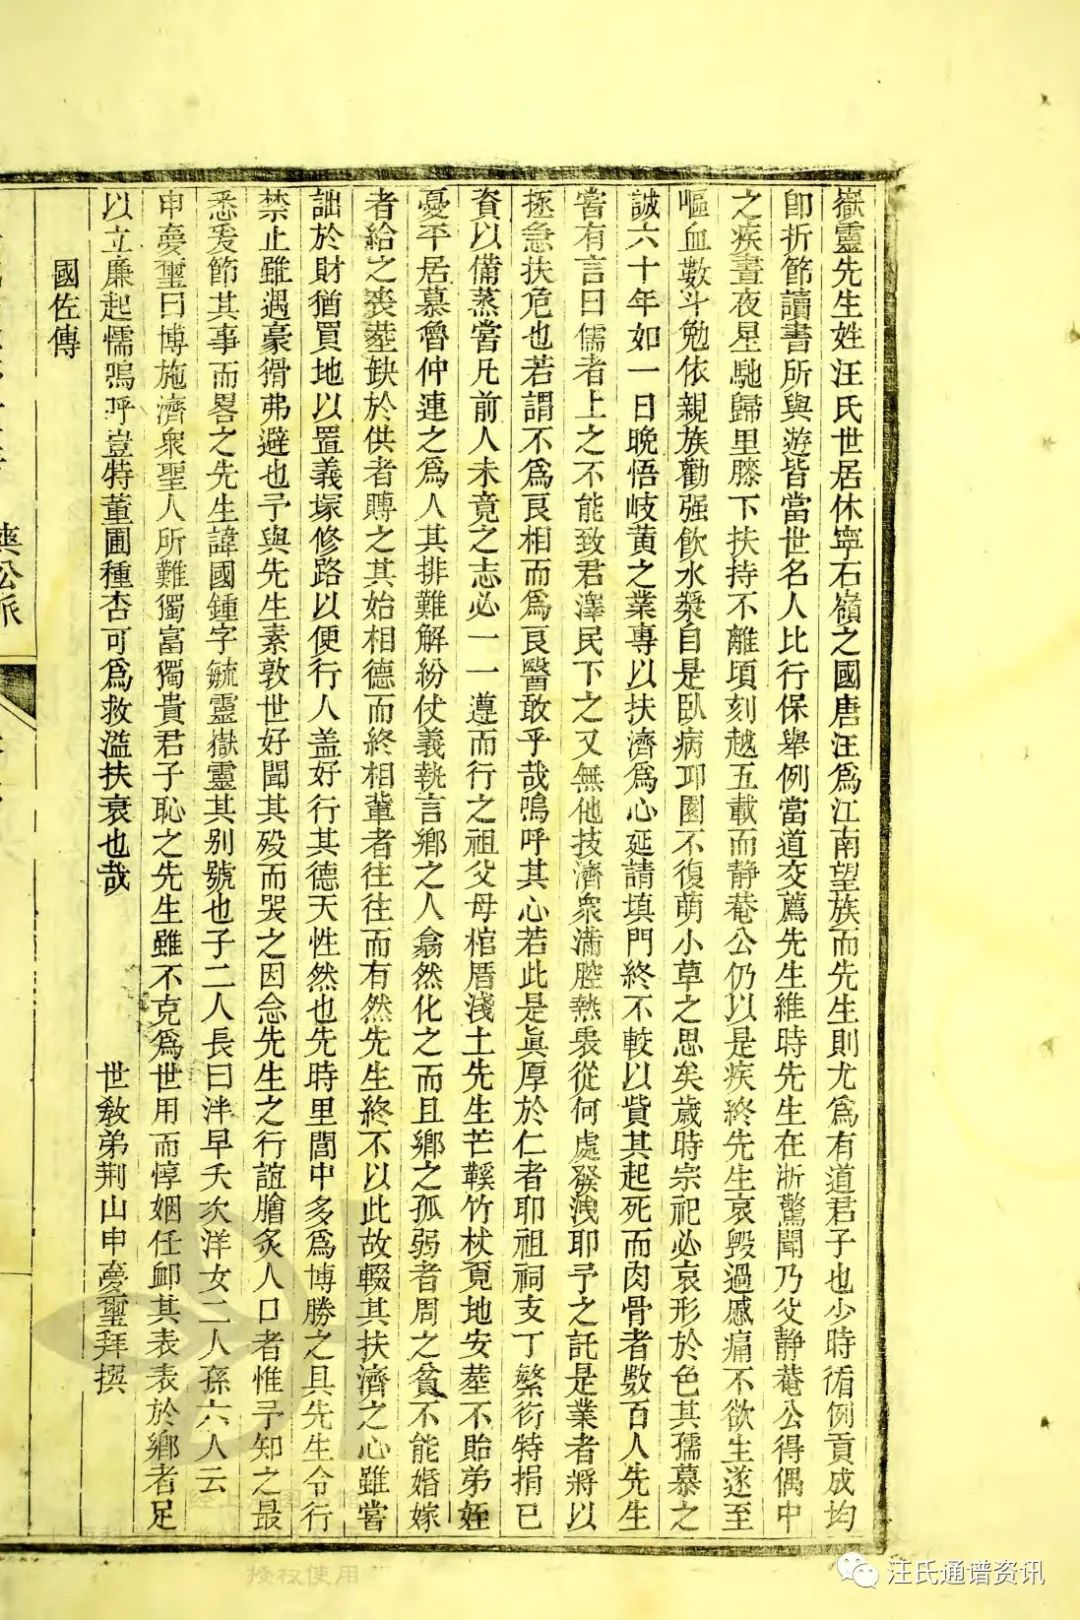 嶽靈先生姓汪氏世居休寧石嶺之國唐汪爲江南望族而先生則尤爲有道君子也少時循例貢成均
卽折節讀書所與遊皆當世名人比行保舉例當道交薦先生維時先生在浙驚聞乃父靜菴公得偶中
之疾晝夜星馳歸里膝下扶持不離頃刻越五載而靜菴公仍以是疾終先生哀毀過慼痛不欲生遂至
嘔血數斗勉依親族勸强飲水漿自是臥病邱園不復萌小草之思矣歲時宗祀必哀形於色其孺慕之
誠六十年如一日晚悟岐黃之業專以扶濟爲心延請填門終不較以貲其起死而肉骨者數百人先生
嘗有言曰儒者上之不能致君澤民下之又無他技濟衆滿腔熱衷從何處發洩耶予之託是業者將以
拯急扶危也若謂不爲良相而爲良醫敢乎哉嗚呼其心若此是眞厚於仁者耶祖祠支丁繁衍特捐已
資以備蒸嘗凡前人未竟之志必一一遵而行之祖父母棺厝淺土先生芒鞵竹杖覔地安塟不貽弟姪
憂平居慕魯仲連之爲人其排難解紛仗義執言鄉之人翕然化之而且鄉之孤弱者周之貧不能婚嫁
者給之喪塟缺於供者賻之其始相德而終相軰者往往而有然先生終不以此故輟其扶濟之心雖嘗
詘於財猶買地以置義塚修路以便行人盖好行其德天性然也先時里閭中多爲博勝之具先生令行
禁止雖遇豪猾弗避也予與先生素敦世好聞其歿而哭之因念先生之行誼膾炙人口者惟予知之最
悉爰節其事而畧之先生諱國鍾字毓靈嶽靈其别號也子二人長曰泮早夭次洋女二人孫六人云
申夢璽曰博施濟衆聖人所難獨富獨貴君子恥之先生雖不克爲世用而惇姻任卹其表表於鄉者足
以立廉起懦嗚呼豈特董圃種杏可爲救溢扶衰也哉
世敎弟荆山申夢璽拜撰
國佐傳
公派
汪氏通谱资讯
授权使用